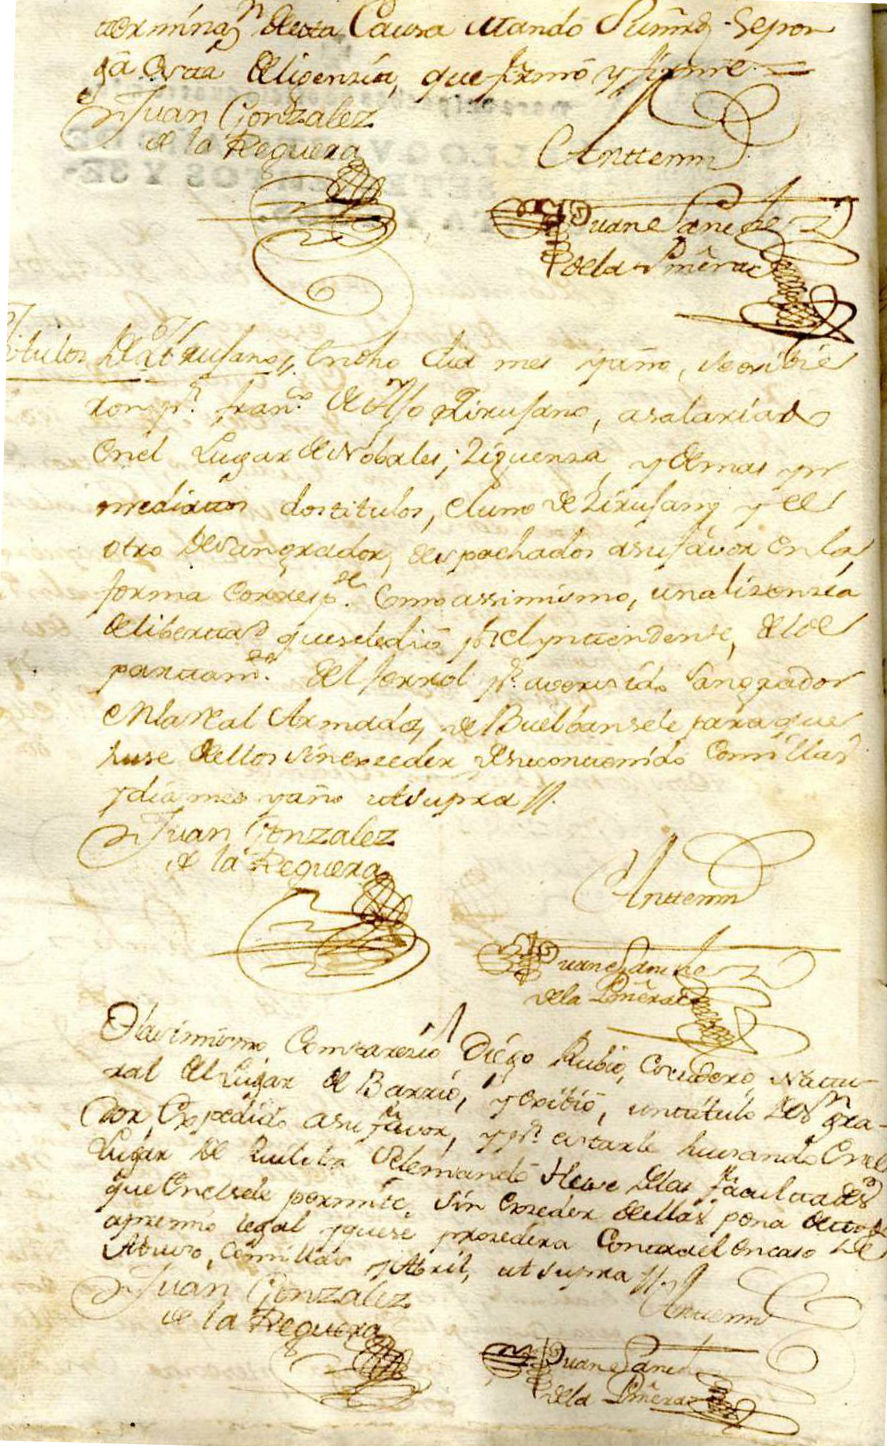 terminaz.n de esta Causa estando Pum.do Sepon
ga esta diligencia, que firmó y firme =
Juan Gonzalez
de la Reguera
Anttemi
Juan Sanchez
de la
Titulos de Zirusano // En dho dia mes y año, se exivie
ron p.r Fran.co de Zirusano, asalariado
en el Lugar de Nobales, Ziguenza, y demas yn
mediatos dos titulos, el uno de Zirusano y el
otro de Sangrador, despachados a su favor en la
forma corresp.de Como assimismo, una lizenzia
de libertad que se le dió p.r el yntendente, de el de
partam.to del ferrol p.r aver sido Sangrador
en la Real Armada, se Buelban sele para que
huse de ellos sin exceder de su contenido Comillas
y dia mes y año ut supra //.
Juan Gonzalez
de la Reguera
Anttemi
Juan Sanchez
de la
Assimismo Comparezió Diego Rubio, Cordero, Natu-
ral del Lugar de Barrio, y exivió, un titulo de Sangra-
dor, Expedido a su favor, y p.r estarle husando en el
Lugar de se le mandó Huse de las facultades
que en el se le permite, sin exzeder de ellas pena de todo
apremio legal y que se prozederá Contra el en caso de
Abuso, Comillas y Abril, ut supra //
Juan Gonzalez
de la Reguera
Anttemi
Juan Sanchez
de la